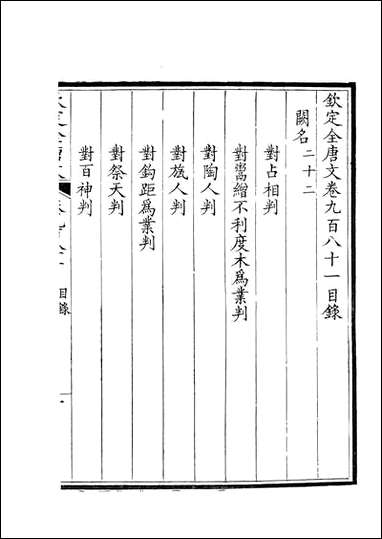 欽定全唐文卷九百八十一目錄
闕名二十二
對占相判
對鬻繒不利度木爲業判
對陶人判
對旊人判
對鉤距爲業判
對祭天判
對百神判
目錄